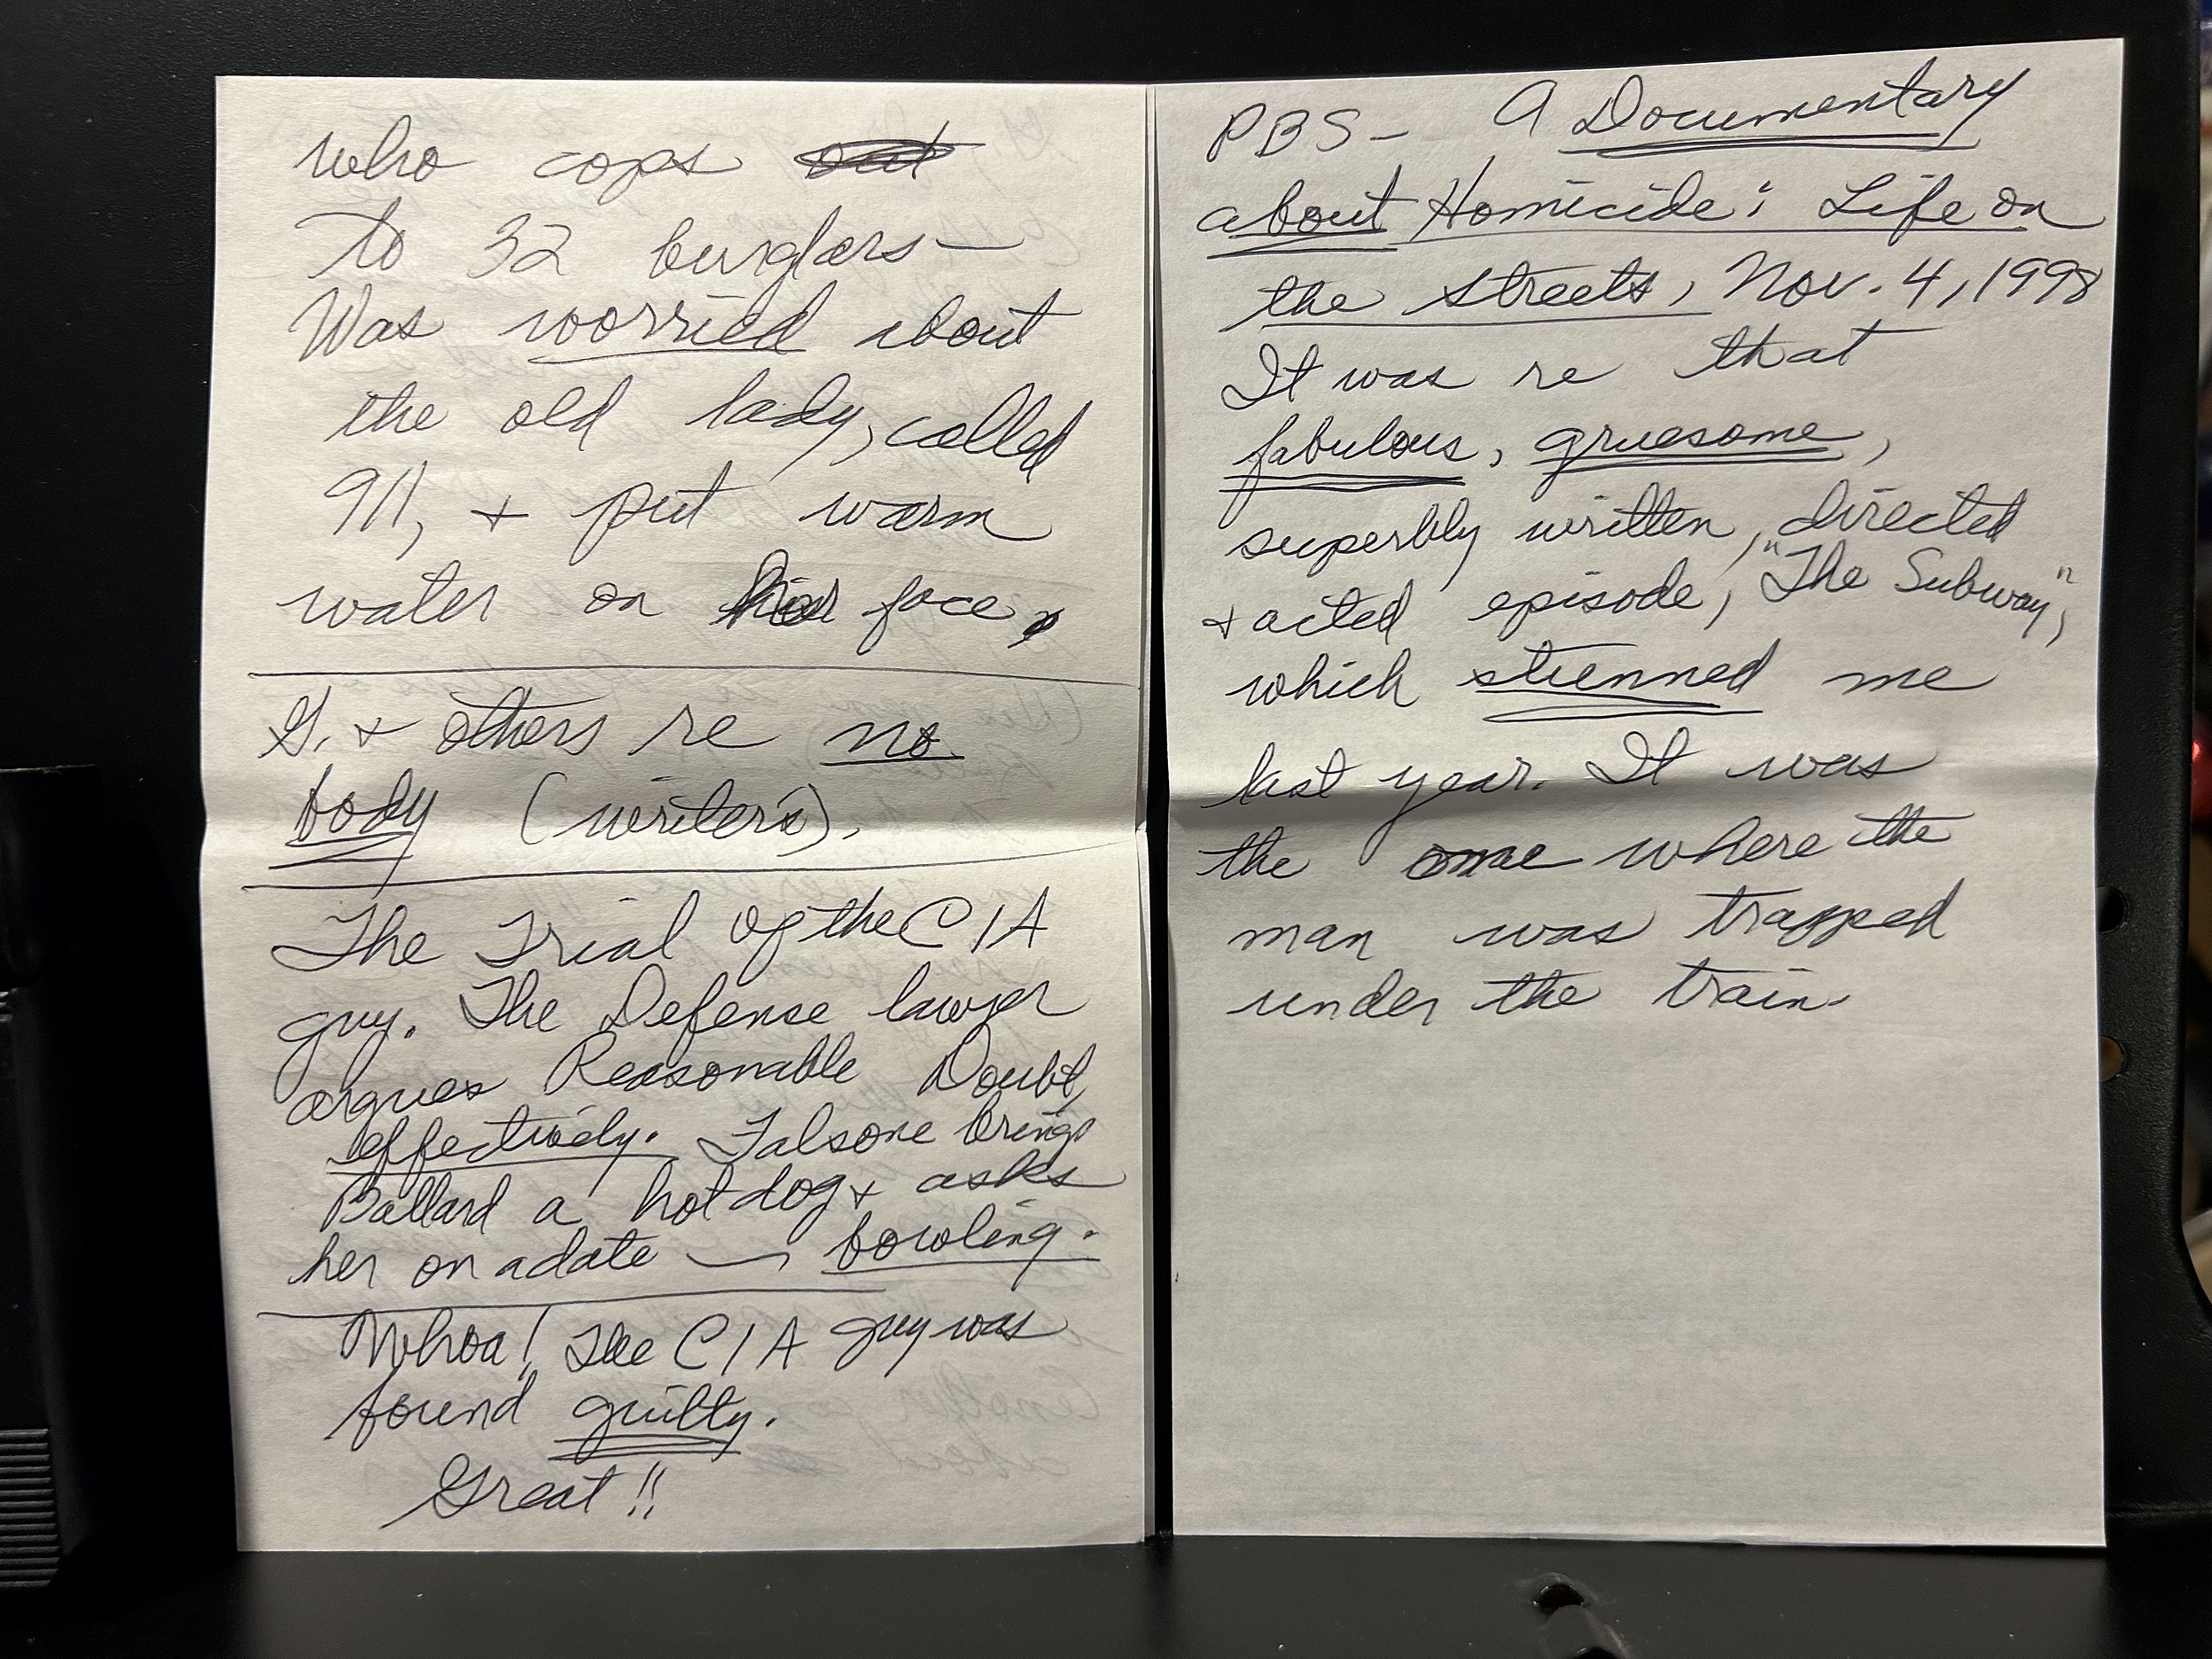 who cops
to 32 burglars—
Was worried about
the old lady, called
911, + put warm
water on her face.
G. + others re no
body (writers).
The Trial of the CIA
guy. The Defense lawyer
argues Reasonable Doubt,
effectively. Falsone brings
Ballard a hot dog + asks
her on a date — bowling.
Whoa! The CIA guy was
found guilty.
Great!!
PBS - A Documentary
about Homicide: Life on
the Streets, Nov. 4, 1998
It was re that
fabulous, gruesome,
superbly written, directed
+ acted episode, "The Subway",
which stunned me
last year. It was
the one where the
man was trapped
under the train.